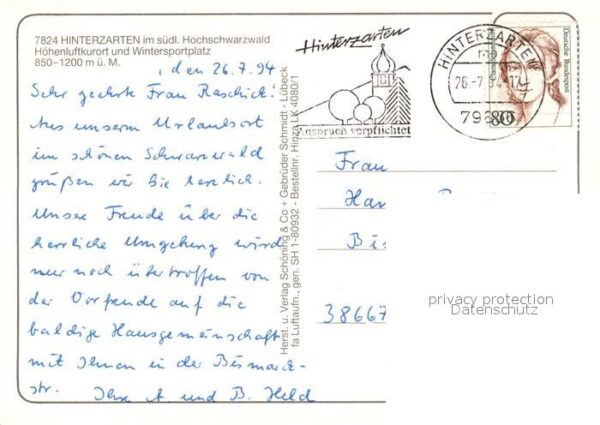 7824 HINTERZARTEN im südl. Hochschwarzwald
Höhenluftkurort und Wintersportplatz
850–1200 m ü. M.
, den 26.7.94
Sehr geehrte Frau Raschick!
Aus unserm Urlaubsort
im schönen Schwarzwald
grüßen wir Sie herzlich.
Unsere Freude über die
herrliche Umgebung wird
nur noch übertroffen von
der Vorfreude auf die
baldige Hausgemeinschaft
mit Ihnen in der Bismarck-
str.
Ihre A und B. Held
Herst. u. Verlag Schöning & Co + Gebrüder Schmidt - Lübeck
fa Luftaufn., gen. SH 1-80932 - Bestellnr. Hinza LK 4080/1
Hinterzarten
Anspruch verpflichtet
HINTERZARTEN
26.-7.94-17
798
Deutsche Bundespost
80
Frau
Han
Bi
38667
privacy protection
Datenschutz